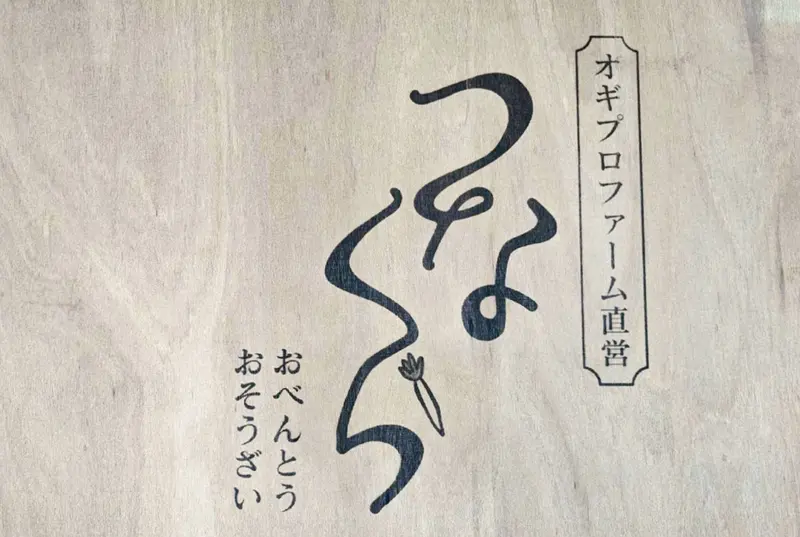 オギプロファーム直営
つなくら
おべんとう
おそうざい